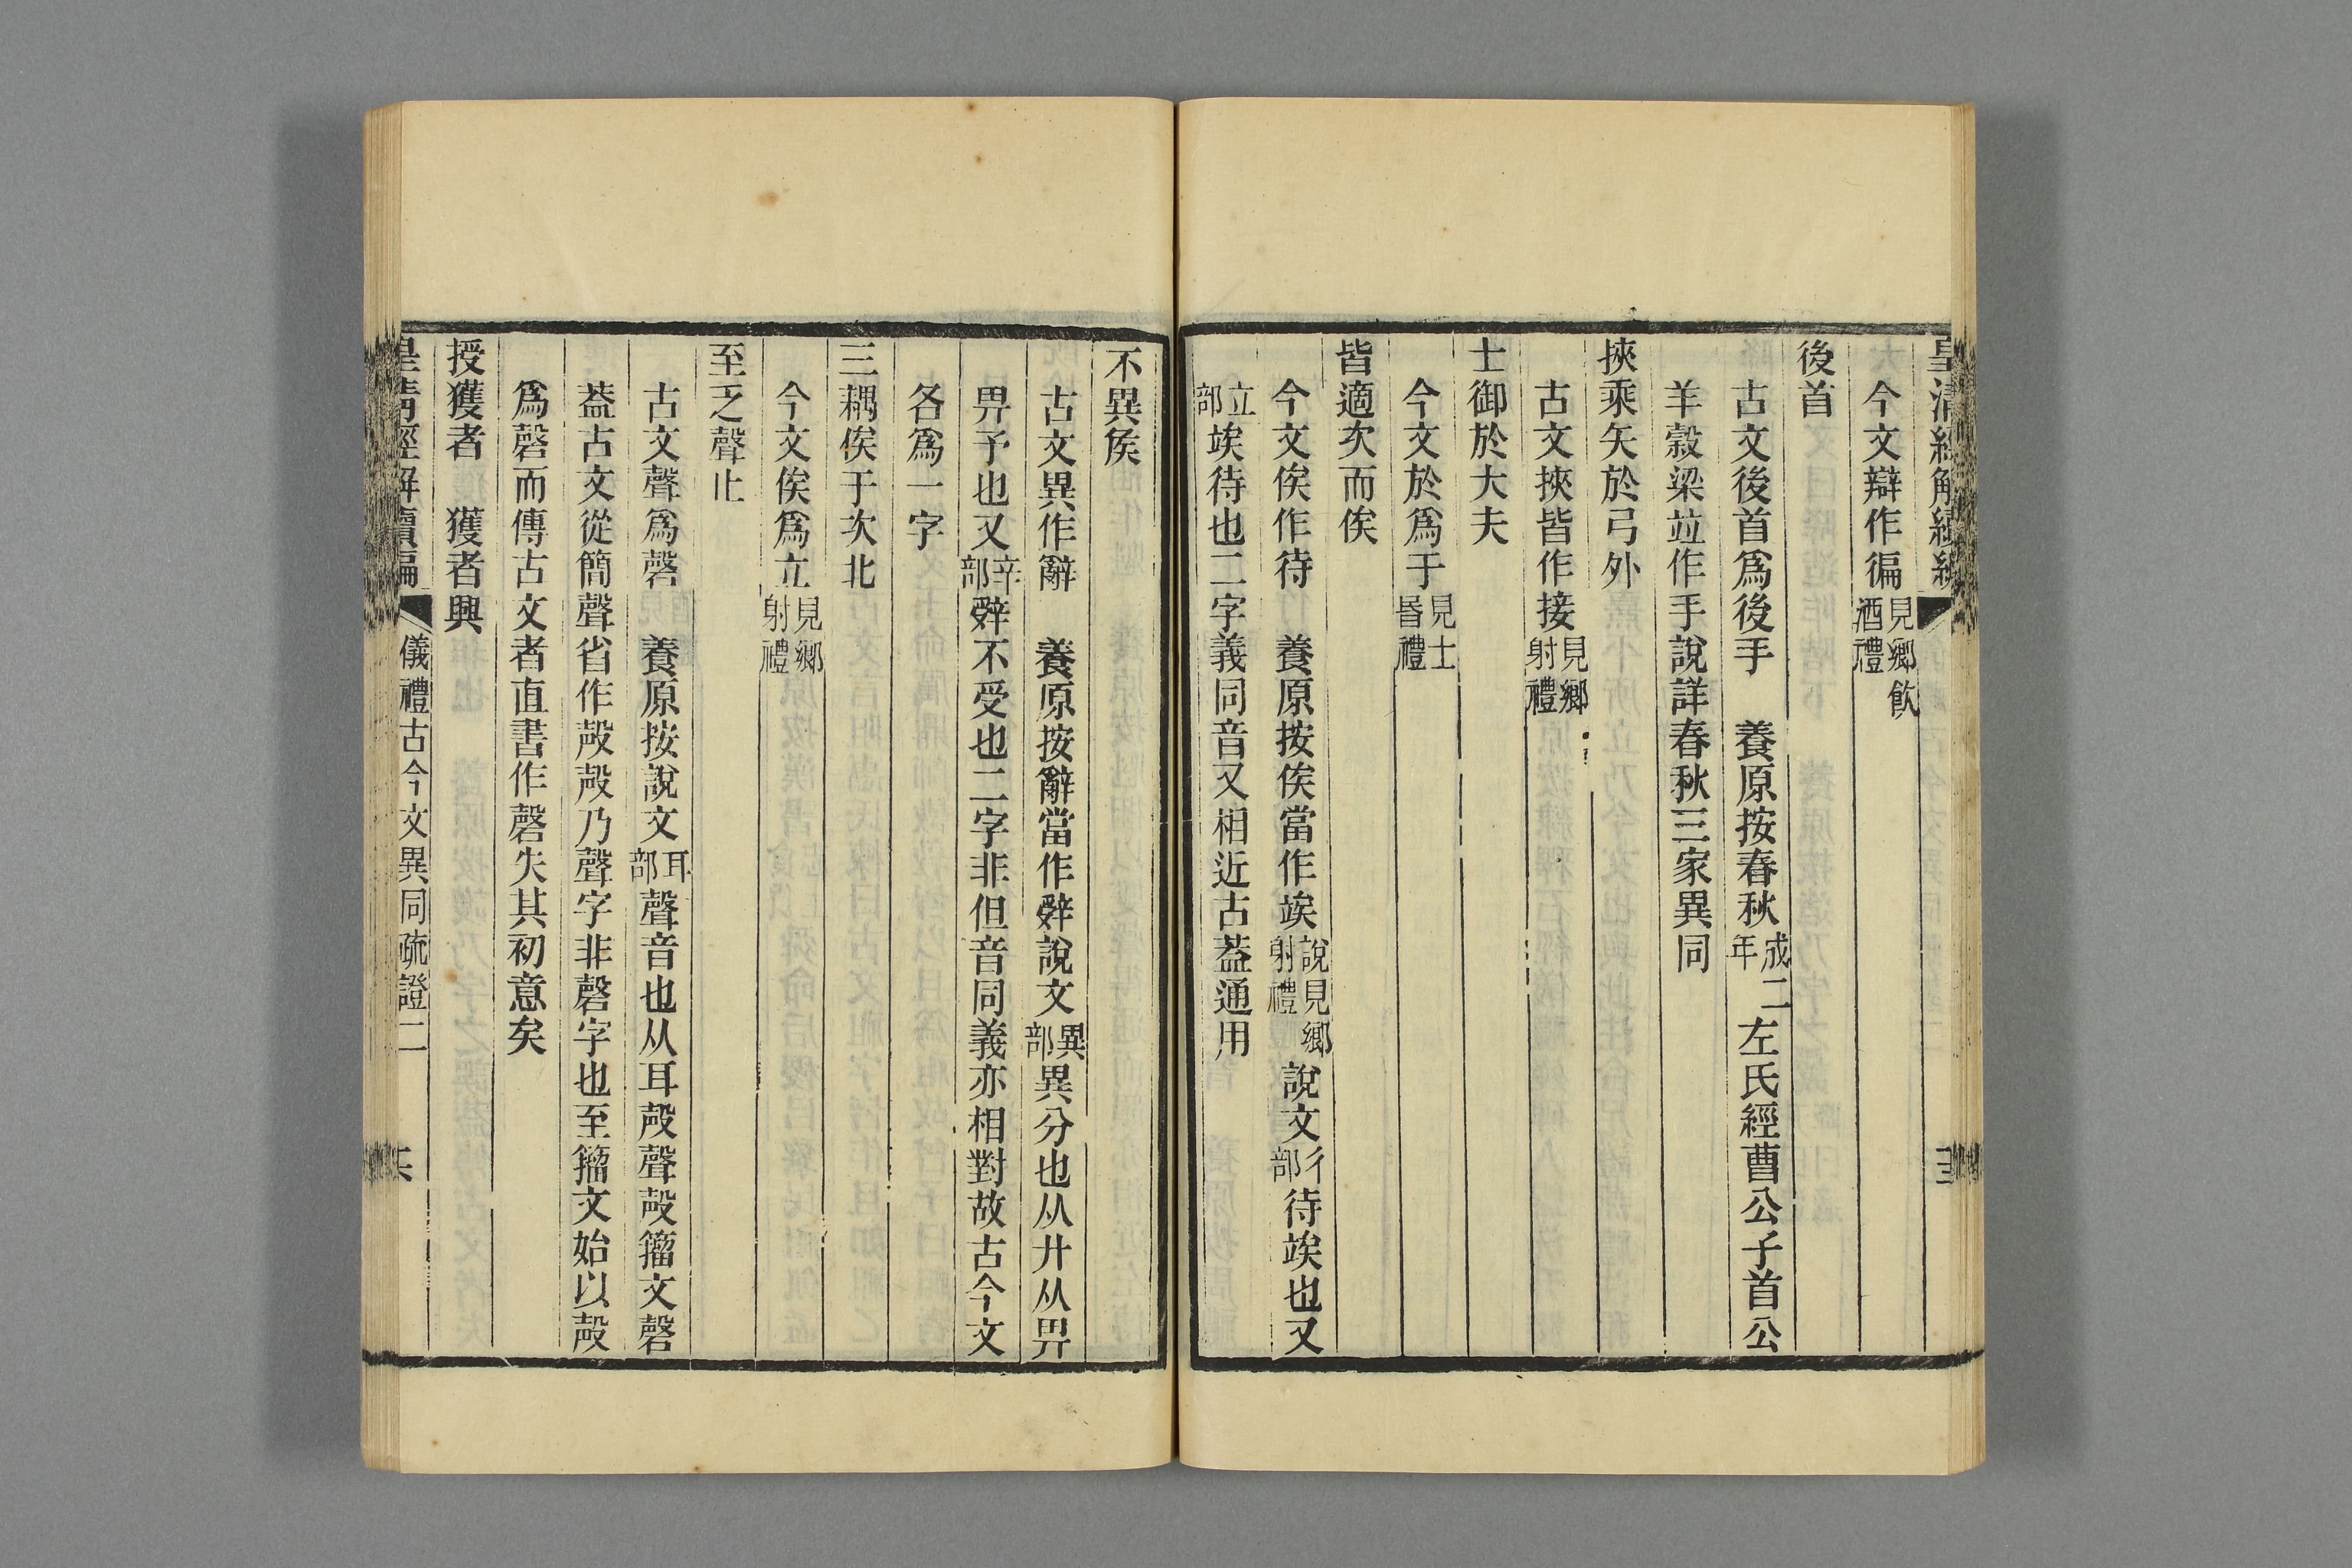 皇清經解續編
今文辯作徧見鄉飲酒禮
後首
古文後首爲後手　養原按春秋成二年左氏經曹公子首公
羊穀梁竝作手說詳春秋三家異同
挾乘矢於弓外
古文挾皆作接見鄉射禮
士御於大夫
今文於爲于見士昏禮
皆適次而俟
今文俟作待　養原按俟當作竢說見鄉射禮說文彳部待竢也又
立部竢待也二字義同音又相近古葢通用
不異矦
古文異作辭　養原按辭當作辤說文異部異分也从廾从畀
畀予也又辛部辤不受也二字非但音同義亦相對故古今文
各爲一字
三耦俟于次北
今文俟爲立見鄉射禮
至乏聲止
古文聲爲磬　養原按說文耳部聲音也从耳殸聲殸籒文磬
葢古文從簡聲省作殸殸乃聲字非磬字也至籒文始以殸
爲磬而傳古文者直書作磬失其初意矣
授獲者　獲者興
皇清經解續編　儀禮古今文異同疏證二